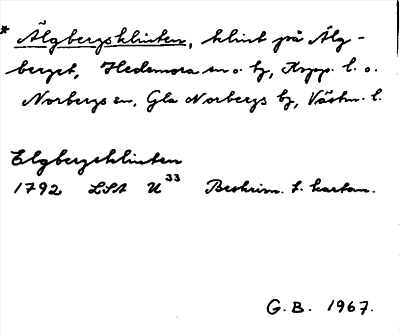 * Älgbergsklinten, klint på Älg-
berget, Hedemora sn o. hg, Kopp. l. o.
Norbergs sn, Gla Norbergs bg, Västm. l.
Elgbergsklinten
1792 LSA U 33 Beskrivn. t. kartan.
G. B. 1967.